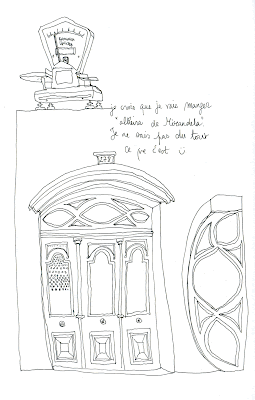 je crois que je vais manger
"alheira de Mirandela"
Je ne sais pas du tout
ce que c'est